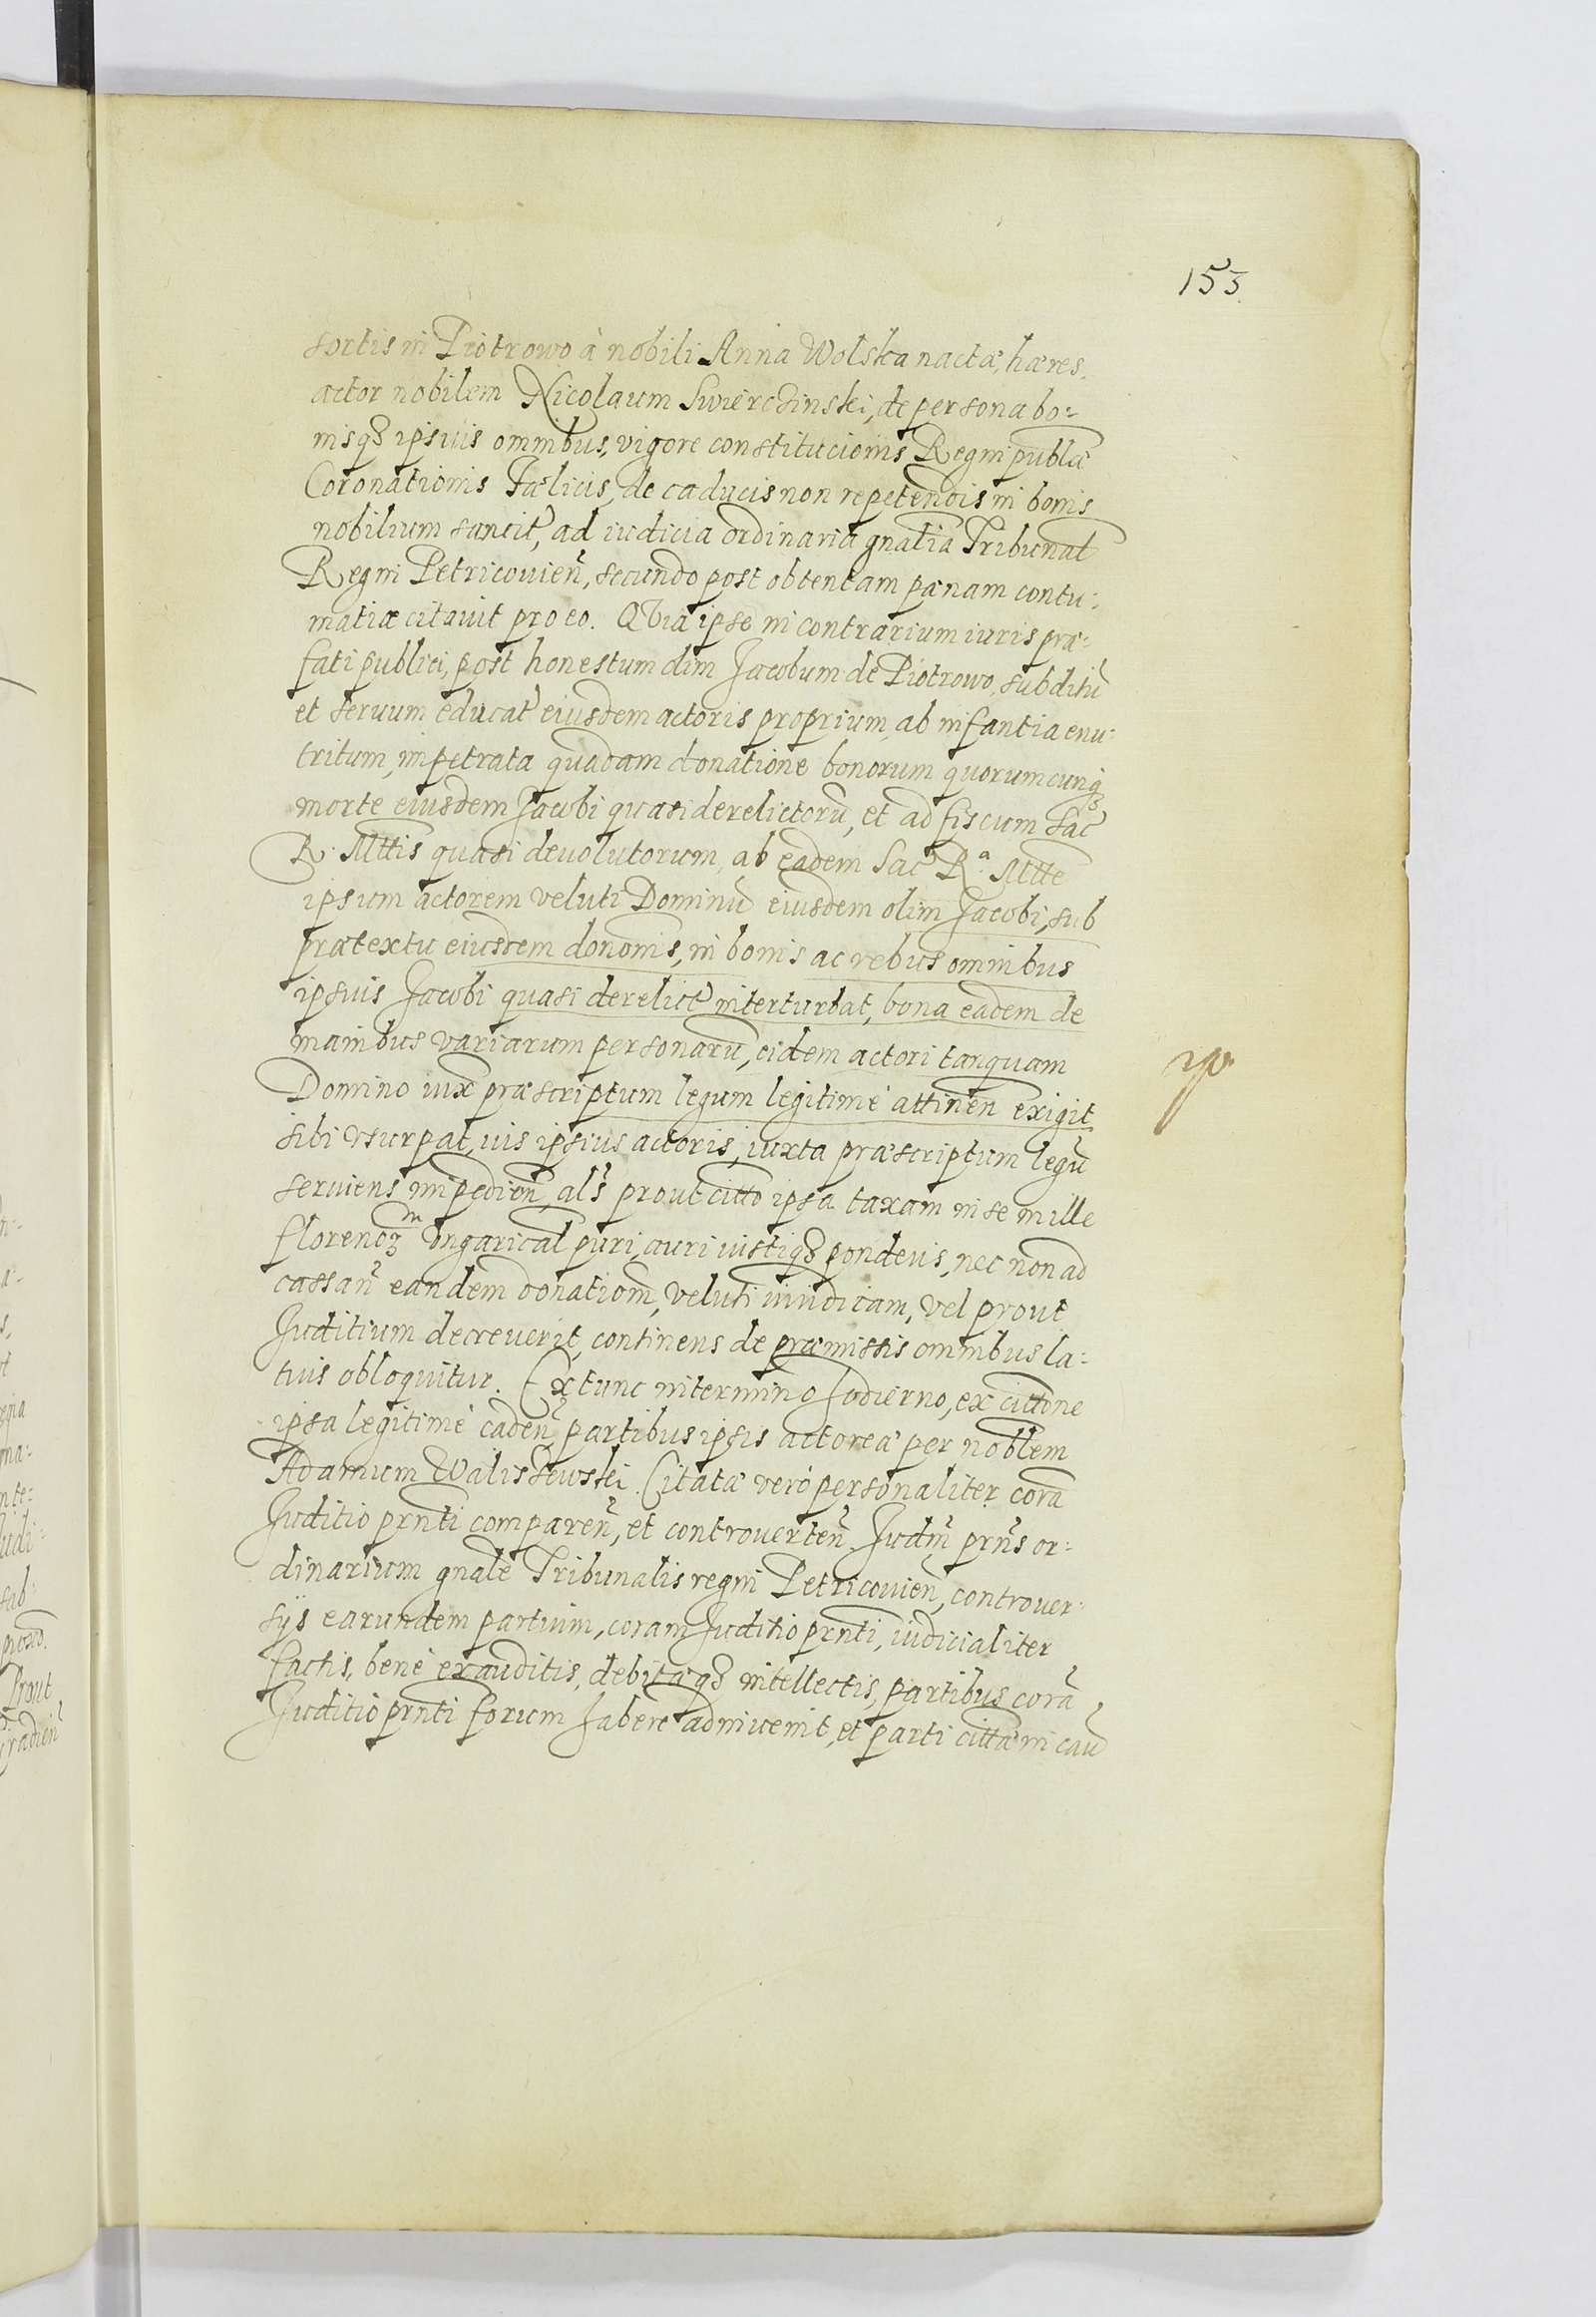 153.
sortis in Piotrowo à nobili Anna Wolska nactæ, hæres.
actor nobilem Nicolaum Swierczinski, de persona bo=
nisq3 ipsius omnibus, vigore constitucionis Regni publæ
Coronationis Fælicis, de caducis non repetendis in bonis
nobilium sancit̃, ad iudicia ordinaria gnalia Tribunal
Regni Petricouien̄, secundo post obtentam pænam contu=
matiæ citauit pro eo. QVia ipse in contrarium iuris præ=
fati publici, post honestum olim Jacobum de Piotrowo, subditū
et seruum educat̃ eiusdem actoris proprium, ab infantia enu=
tritum, impetrata quadam donatione bonorum quorumcunq3
morte eiusdem Jacobi quasi derelictorū, et ad fiscum Sac̃
R. Mttis quasi deuolutorum, ab eadem Sac̃ Rª. Mtte
ipsum actorem veluti Dominū eiusdem olim Jacobi, sub
prætextu eiusdem dononis, in bonis ac rebus omnibus
ipsius Jacobi quasi derelict̃ interturbat, bona eadem de
manibus variarum personarū, eidem actori tanquam
Domino iux̄ præscriptum legum legitimè attinen̄ exigit
sibi vsurpat, ius ipsius actoris, iuxta præscriptum legū
seruiens impedien̄, als̃ prout citto ipsa taxam in se mille
florenoꝝ m Vngarical puri, auri iustiq3 ponderis, nec non ad
cassan̄ eandem donatiom̄, veluti iuridicam, vel prout
Juditium decreuerit, continens de præmissis omnibus la=
tius obloquitur. Ex tunc in termino hodierno, ex cittone
ipsa legitimè caden̄ partibus ipsis actorea per noblem
Adamum Waliszewski. Citata verò personaliter corā
Juditio prnti comparen̄, et controuerten̄. Judm̄ prn̄s or=
dinarium gnale Tribunalis regni Petricouien̄, controuer=
sÿs earundem partium, coram Juditio prnti, iudicialiter
factis, benè exauditis, debitaq3 intellectis, partibus corā
Juditio prnti forum habere adinuenit, et parti cittæ in cau̅